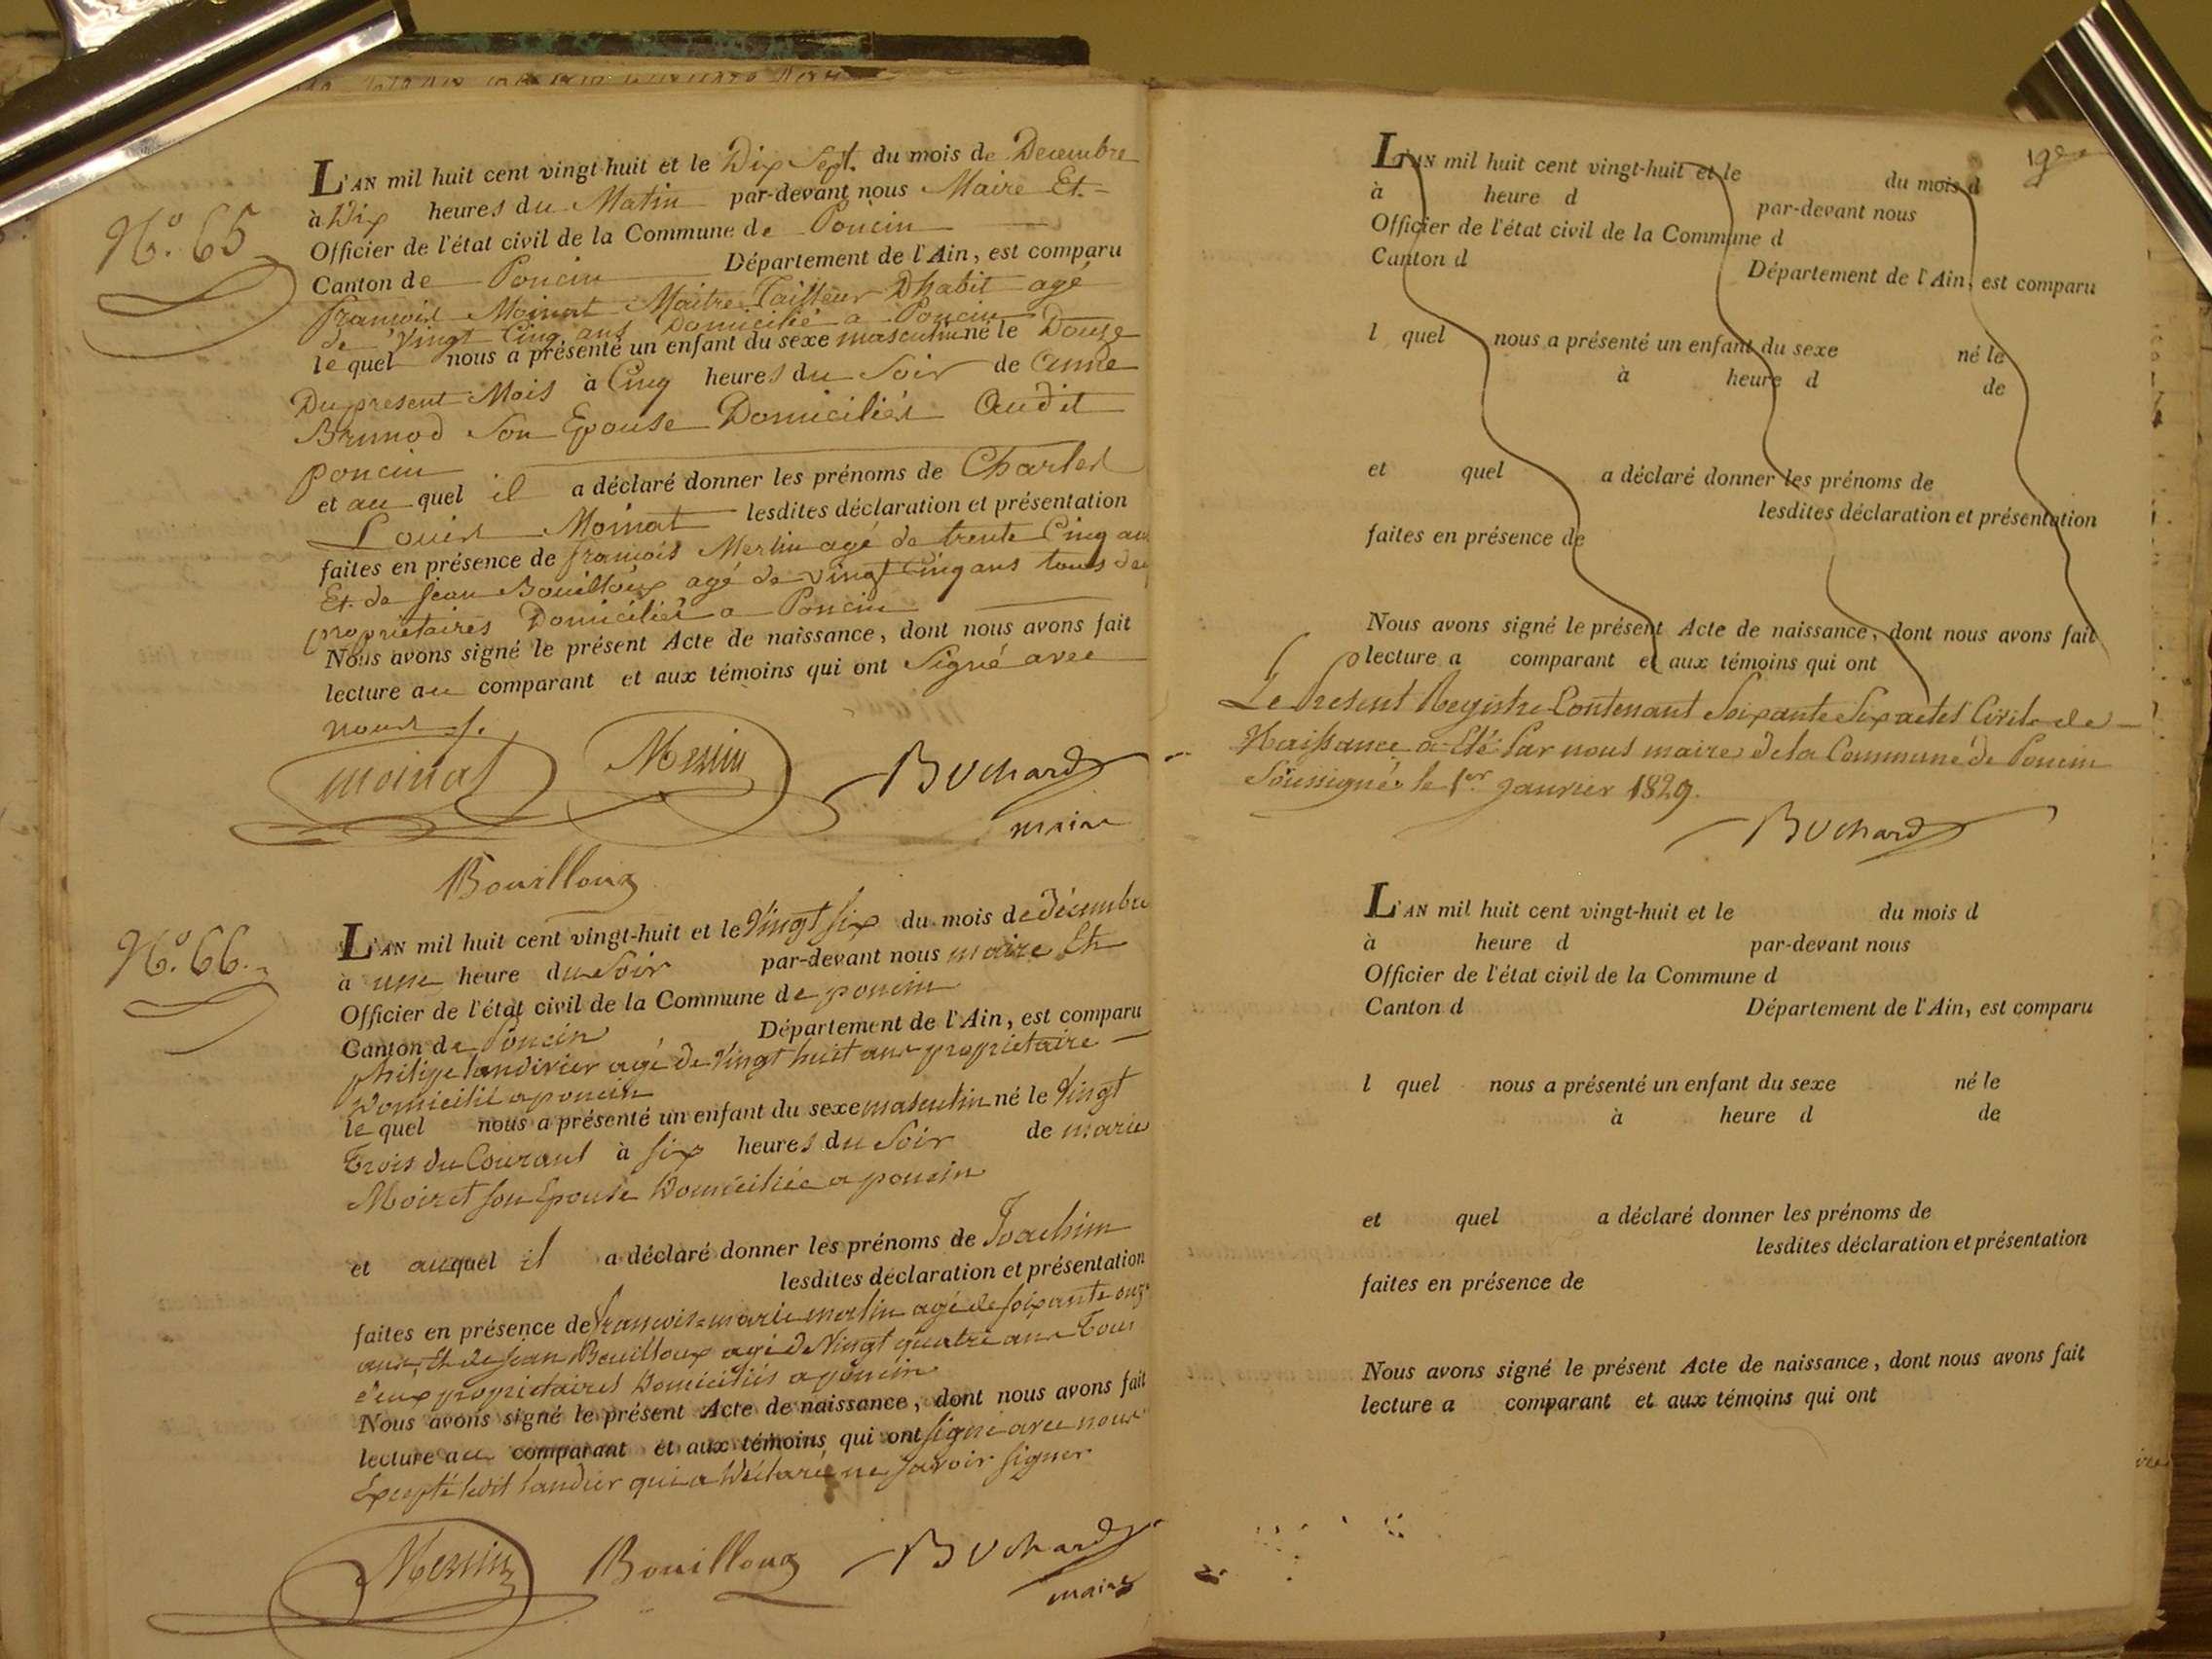 N.º 65
L'AN mil huit cent vingt-huit et le Dix Sept. du mois de Decembre
à Dix heures du Matin par-devant nous Maire Et
Officier de l'état civil de la Commune de Poncin
Canton de Poncin Département de l'Ain, est comparu
françois Moinat Maitre Tailleur Dhabit agé
de Vingt Cinq ans Domicilié a Poncin
le quel nous a présenté un enfant du sexe masculin né le Douze
Du present Mois à Cinq heures du Soir de Anne
Brunod Son Epouse Domiciliés Audit
poncin
et au quel il a déclaré donner les prénoms de Charles
Louis Moinat lesdites déclaration et présentation
faites en présence de françois Merlin agé de trente Cinq ans
Et de Jean Bouilloux agé de Vingt Cinq ans tous deux
propriétaires Domiciliés a Poncin
Nous avons signé le présent Acte de naissance, dont nous avons fait
lecture au comparant et aux témoins qui ont Signé avec
nous
moinat Merlin Buchard
maire
Bouilloux
N.º 66.
L'AN mil huit cent vingt-huit et le Vingt six du mois de décembre
à une heure du Soir par-devant nous maire Et
Officier de l'état civil de la Commune de poncin
Canton de Poncin Département de l'Ain, est comparu
philipe landivier agé de Vingt huit ans propriétaire
Domicilié a poncin
le quel nous a présenté un enfant du sexe masculin né le Vingt
Trois du Courant à six heures du Soir de marie
Moiret son Epouse Domiciliée a poncin
et auquel il a déclaré donner les prénoms de Joachim
lesdites déclaration et présentation
faites en présence de françois-marie merlin agé de soixante onze
ans, Et de jean Bouilloux agé de Vingt quatre ans Tous
deux propriétaires Domiciliés a poncin
Nous avons signé le présent Acte de naissance, dont nous avons fait
lecture au comparant et aux témoins qui ont signé avec nous
Excepté ledit landier qui a Déclaré ne savoir signer
Merlin Bouilloux Buchard
maire
L'AN mil huit cent vingt-huit et le du mois d
à heure d par-devant nous
Officier de l'état civil de la Commune d
Canton d Département de l'Ain, est comparu
l quel nous a présenté un enfant du sexe né le
à heure d de
et quel a déclaré donner les prénoms de
lesdites déclaration et présentation
faites en présence de
Nous avons signé le présent Acte de naissance, dont nous avons fait
lecture a comparant et aux témoins qui ont
Le Present Registre Contenant Soixante Six actes Civils de
Naissance a Eté Par nous maire de la Commune de Poncin
Soussigné le 1er Janvier 1829.
Buchard
L'AN mil huit cent vingt-huit et le du mois d
à heure d par-devant nous
Officier de l'état civil de la Commune d
Canton d Département de l'Ain, est comparu
l quel nous a présenté un enfant du sexe né le
à heure d de
et quel a déclaré donner les prénoms de
lesdites déclaration et présentation
faites en présence de
Nous avons signé le présent Acte de naissance, dont nous avons fait
lecture a comparant et aux témoins qui ont